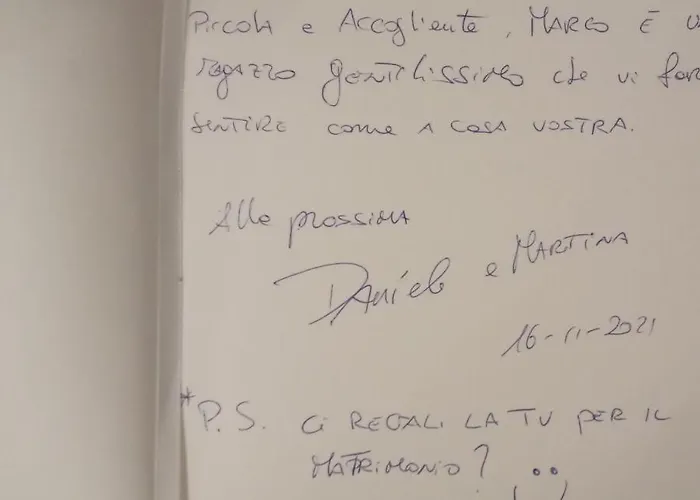 Piccola e Accogliente, Marco è u
ragazzo gentilissimo che vi far
sentire come a casa vostra.
Alla prossima
Daniele e Martina
16-11-2021
*P.S. Ci regali la TV per il
matrimonio? :)